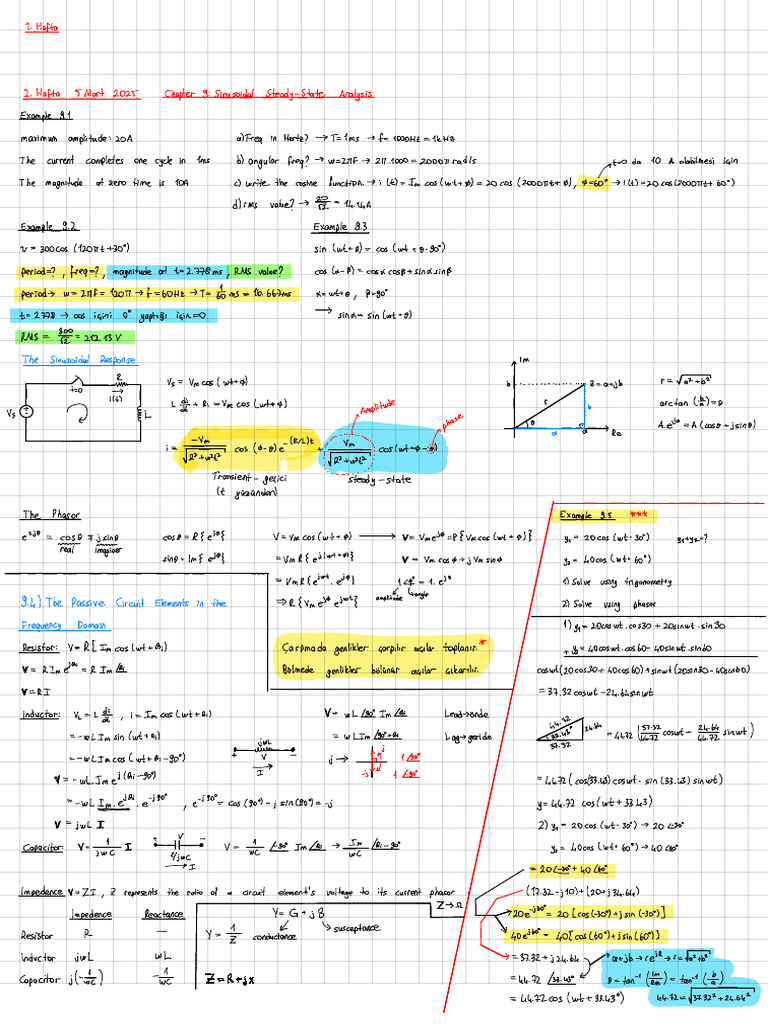 1. Hafta
2. Hafta 5 Mart 2025 Chapter 9: Sinusoidal Steady-State Analysis
Example 9.1
maximum amplitude: 20A
The current completes one cycle in 1ms
The magnitude at zero time is 10A
a) Freq in Hertz? → T=1ms → f=1000Hz=1kHz
b) angular freq? → w=2πf → 2π.1000=2000π rad/s
t=0 da 10 A olabilmesi için
c) write the cosine function → i(t)=Im cos(wt+φ)=20 cos(2000πt+φ), φ=60° → i(t)=20cos(2000πt+60°)
d) rms value? → 20/√2 = 14.14A
Example 9.2
v=300cos(120πt+30°)
period=?, freq=?, magnitude at t=2.778ms, RMS value?
period → w=2πf=120π → f=60Hz → T=1/60 ms=16.667ms
t=2.778 → cos içini 0° yaptığı için=0
RMS = 300/√2 = 212.13V
Example 9.3
sin(wt+θ)=cos(wt+θ-90°)
cos(α-β)=cosα cosβ+sinα sinβ
α=wt+θ, β=90°
→ sinα=sin(wt+θ)
The Sinusoidal Response
R
t=0
i(t)
Vs
L
Vs=Vm cos(wt+φ)
L di/dt + Ri=Vm cos(wt+φ)
Amplitude
phase
i = -Vm/√(R²+w²L²) cos(φ-θ)e^-(R/L)t + Vm/√(R²+w²L²) cos(wt+φ-θ)
Transient-geçici
(t yüzünden)
steady-state
Im
b
z=a+jb
r
b
θ
a
a
Re
r=√(a²+b²)
arctan(b/a)=θ
A.e^jθ=A(cosθ+jsinθ)
The Phasor
e^±jθ = cosθ ∓ jsinθ
real imaginer
cosθ=R{e^jθ}
sinθ=Im{e^jθ}
V=Vm cos(wt+φ) → V=Vm e^jφ=P{Vm cos(wt+φ)}
=Vm R{e^j(wt+φ)} V = Vm cosφ+jVm sinφ
=Vm R{e^jwt.e^jφ} 1∠φ°=1.e^jφ
amplitude angle
⇒ R{Vm e^jφ e^jwt}
Çarpmada genlikler çarpılır açılar toplanır. *
Bölmede genlikler bölünür açılar çıkarılır.
9.4) The Passive Circuit Elements in the
Frequency Domain
Resistor: V=R[Im cos(wt+θi)
V=RIm e^jθi=RIm∠θi
V=RI
Inductor: VL=L di/dt, i=Im cos(wt+θi)
=-wLIm sin(wt+θi)
=-wLIm cos(wt+θi-90°)
V=-wLIm e^j(θi-90°)
=-wL Im.e^jθi.e^-j90°, e^-j90°=cos(90°)-jsin(90°)=-j
V=jwLI
jwL
V
I
V= wL∠90° Im∠θi
=wL Im∠90°+θi
j →
j
-j
1∠90°
1∠90°
Lead→önde
Lag→geride
Capacitor: V=1/jwC I
V
1/jwC
I
V=1/wC ∠-90° Im∠θi → Im/wC ∠θi-90°
Impedance V=ZI, Z represents the ratio of a circuit element's voltage to its current phasor
Z→Ω
Impedance Reactance
Resistor R —
Inductor jwL wL
Capacitor j(-1/wC) -1/wC
Y=G+jB
Y=1/Z conductance susceptance
Z=R+jx
Example 9.5 ***
y₁=20cos(wt-30°) y₁+y₂=?
y₂=40cos(wt+60°)
1) Solve using trigonometry
2) Solve using phasor
1) y₁=20coswt.cos30+20sinwt.sin30
+ y₂=40coswt.cos60-40sinwt.sin60
coswt(20cos30+40cos60)+sinwt(20sin30-40sin60)
=37.32coswt-24.64sinwt
44.72
24.64
33.43°
37.32
=44.72 [37.32/44.72 coswt - 24.64/44.72 sinwt]
=44.72(cos(33.43)coswt-sin(33.43)sinwt)
y=44.72 cos(wt+33.43)
2) y₁=20cos(wt-30°)→20∠-30°
y₂=40cos(wt+60°)→40∠60°
=20∠-30°+40∠60°
(17.32-j10)+(20+j34.64)
20e^-j30°=20[cos(-30°)+jsin(-30°)]
40e^j60°=40[cos(60°)+jsin(60°)]
=37.32+j24.64
=44.72∠33.43°
=44.72cos(wt+33.43°)
a+jb→re^jβ→r=√(a²+b²)
β=tan⁻¹(Im/Re)=tan⁻¹(b/a)
44.72=√(37.32²+24.64²)